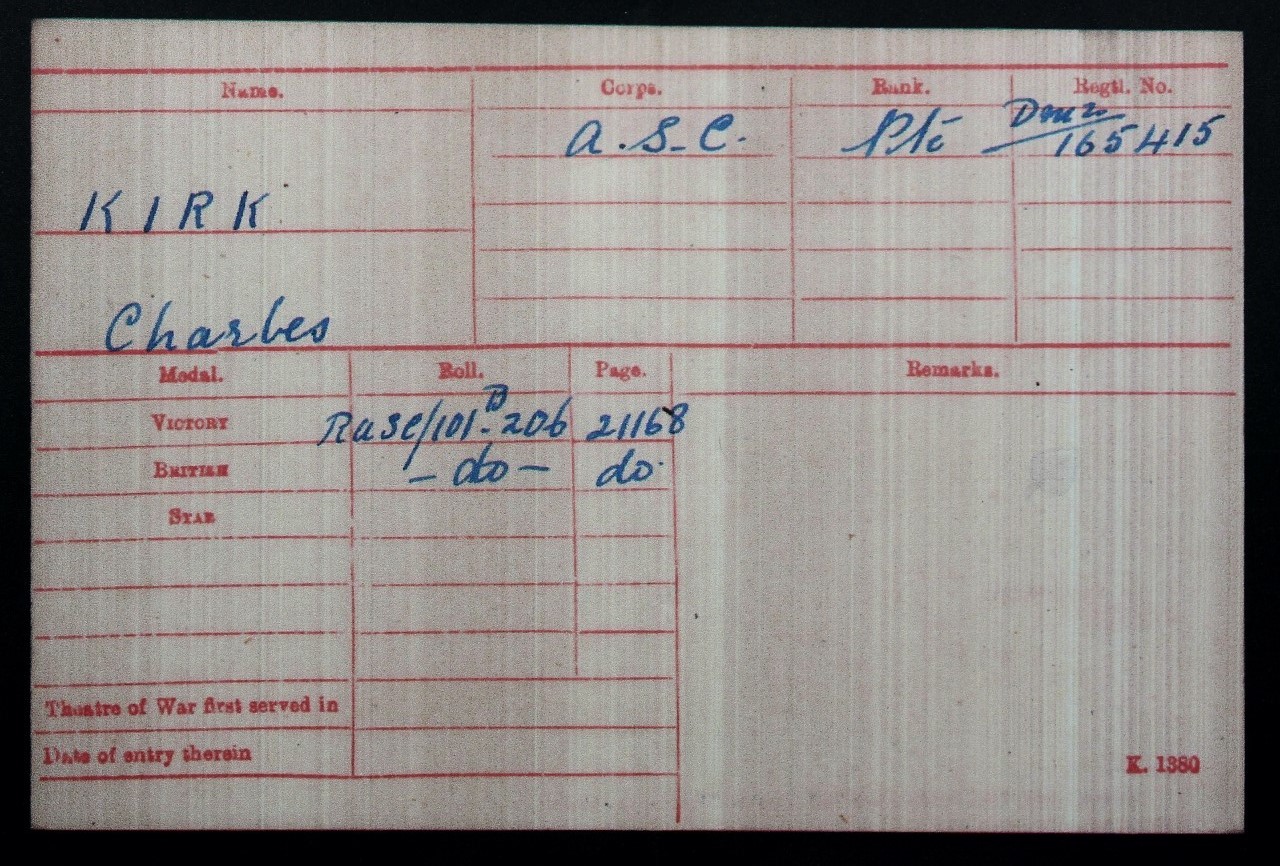 Name. Corps. Rank. Regtl. No.
A.S.C. Pte DM2/165415
KIRK
Charles
Medal. Roll. Page. Remarks.
VICTORY RASC/101B-206 21168
BRITISH - do - do.
STAR
Theatre of War first served in
Date of entry therein
K. 1380